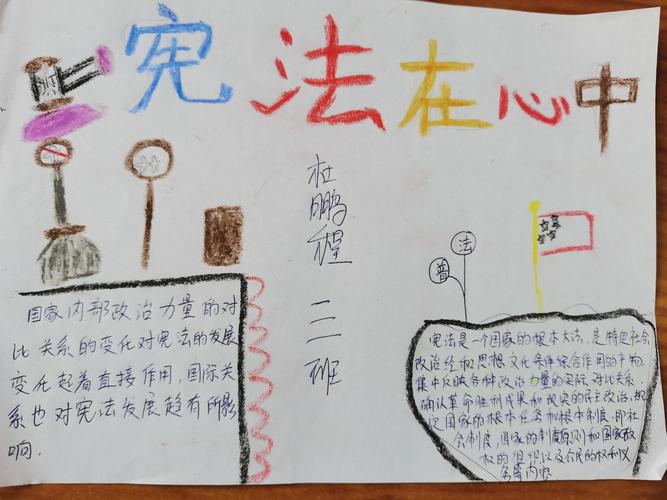 宪法在心中
杜鹏程 二二班
法
普
国家内部政治力量的对
比关系的变化对宪法的发展
变化起着直接作用,国际关
系也对宪法发展趋有所影
响.
宪法是一个国家的根本大法,是特定社会
政治经和思想文化条件综合作用的产物,
集中反映各种政治力量的实际对比关系,
确认革命胜利成果和现实的民主政治,规
定国家的根本任务和根本制度,即社
会制度,国家的制度原则和国家政
权的组织以及公民的权利义
务等内容